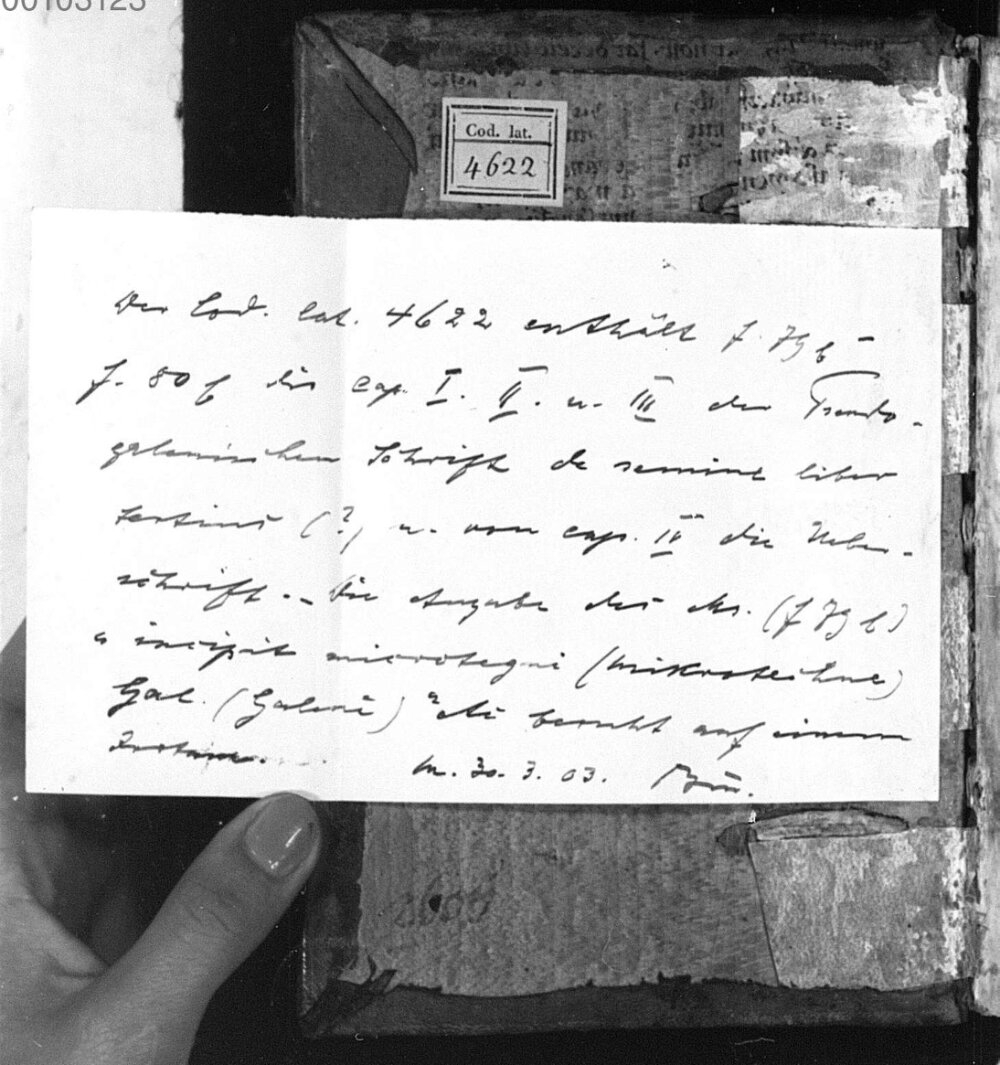 00103123
Cod. lat.
4622
Der Cod. lat. 4622 enthält f. 79 b –
f. 80 b die cap. I. II. u. III der Pseudo-
galenischen Schrift de semine liber
tertius (?) u. vom cap. IV die Ueber-
schrift. – Die Angabe des Ms. (f 79 b)
"incipit microtegni (Mikrotechne)
Gal. (Galeni)" etc beruht auf einem
Irrtum.
M. 30. 3. 03.